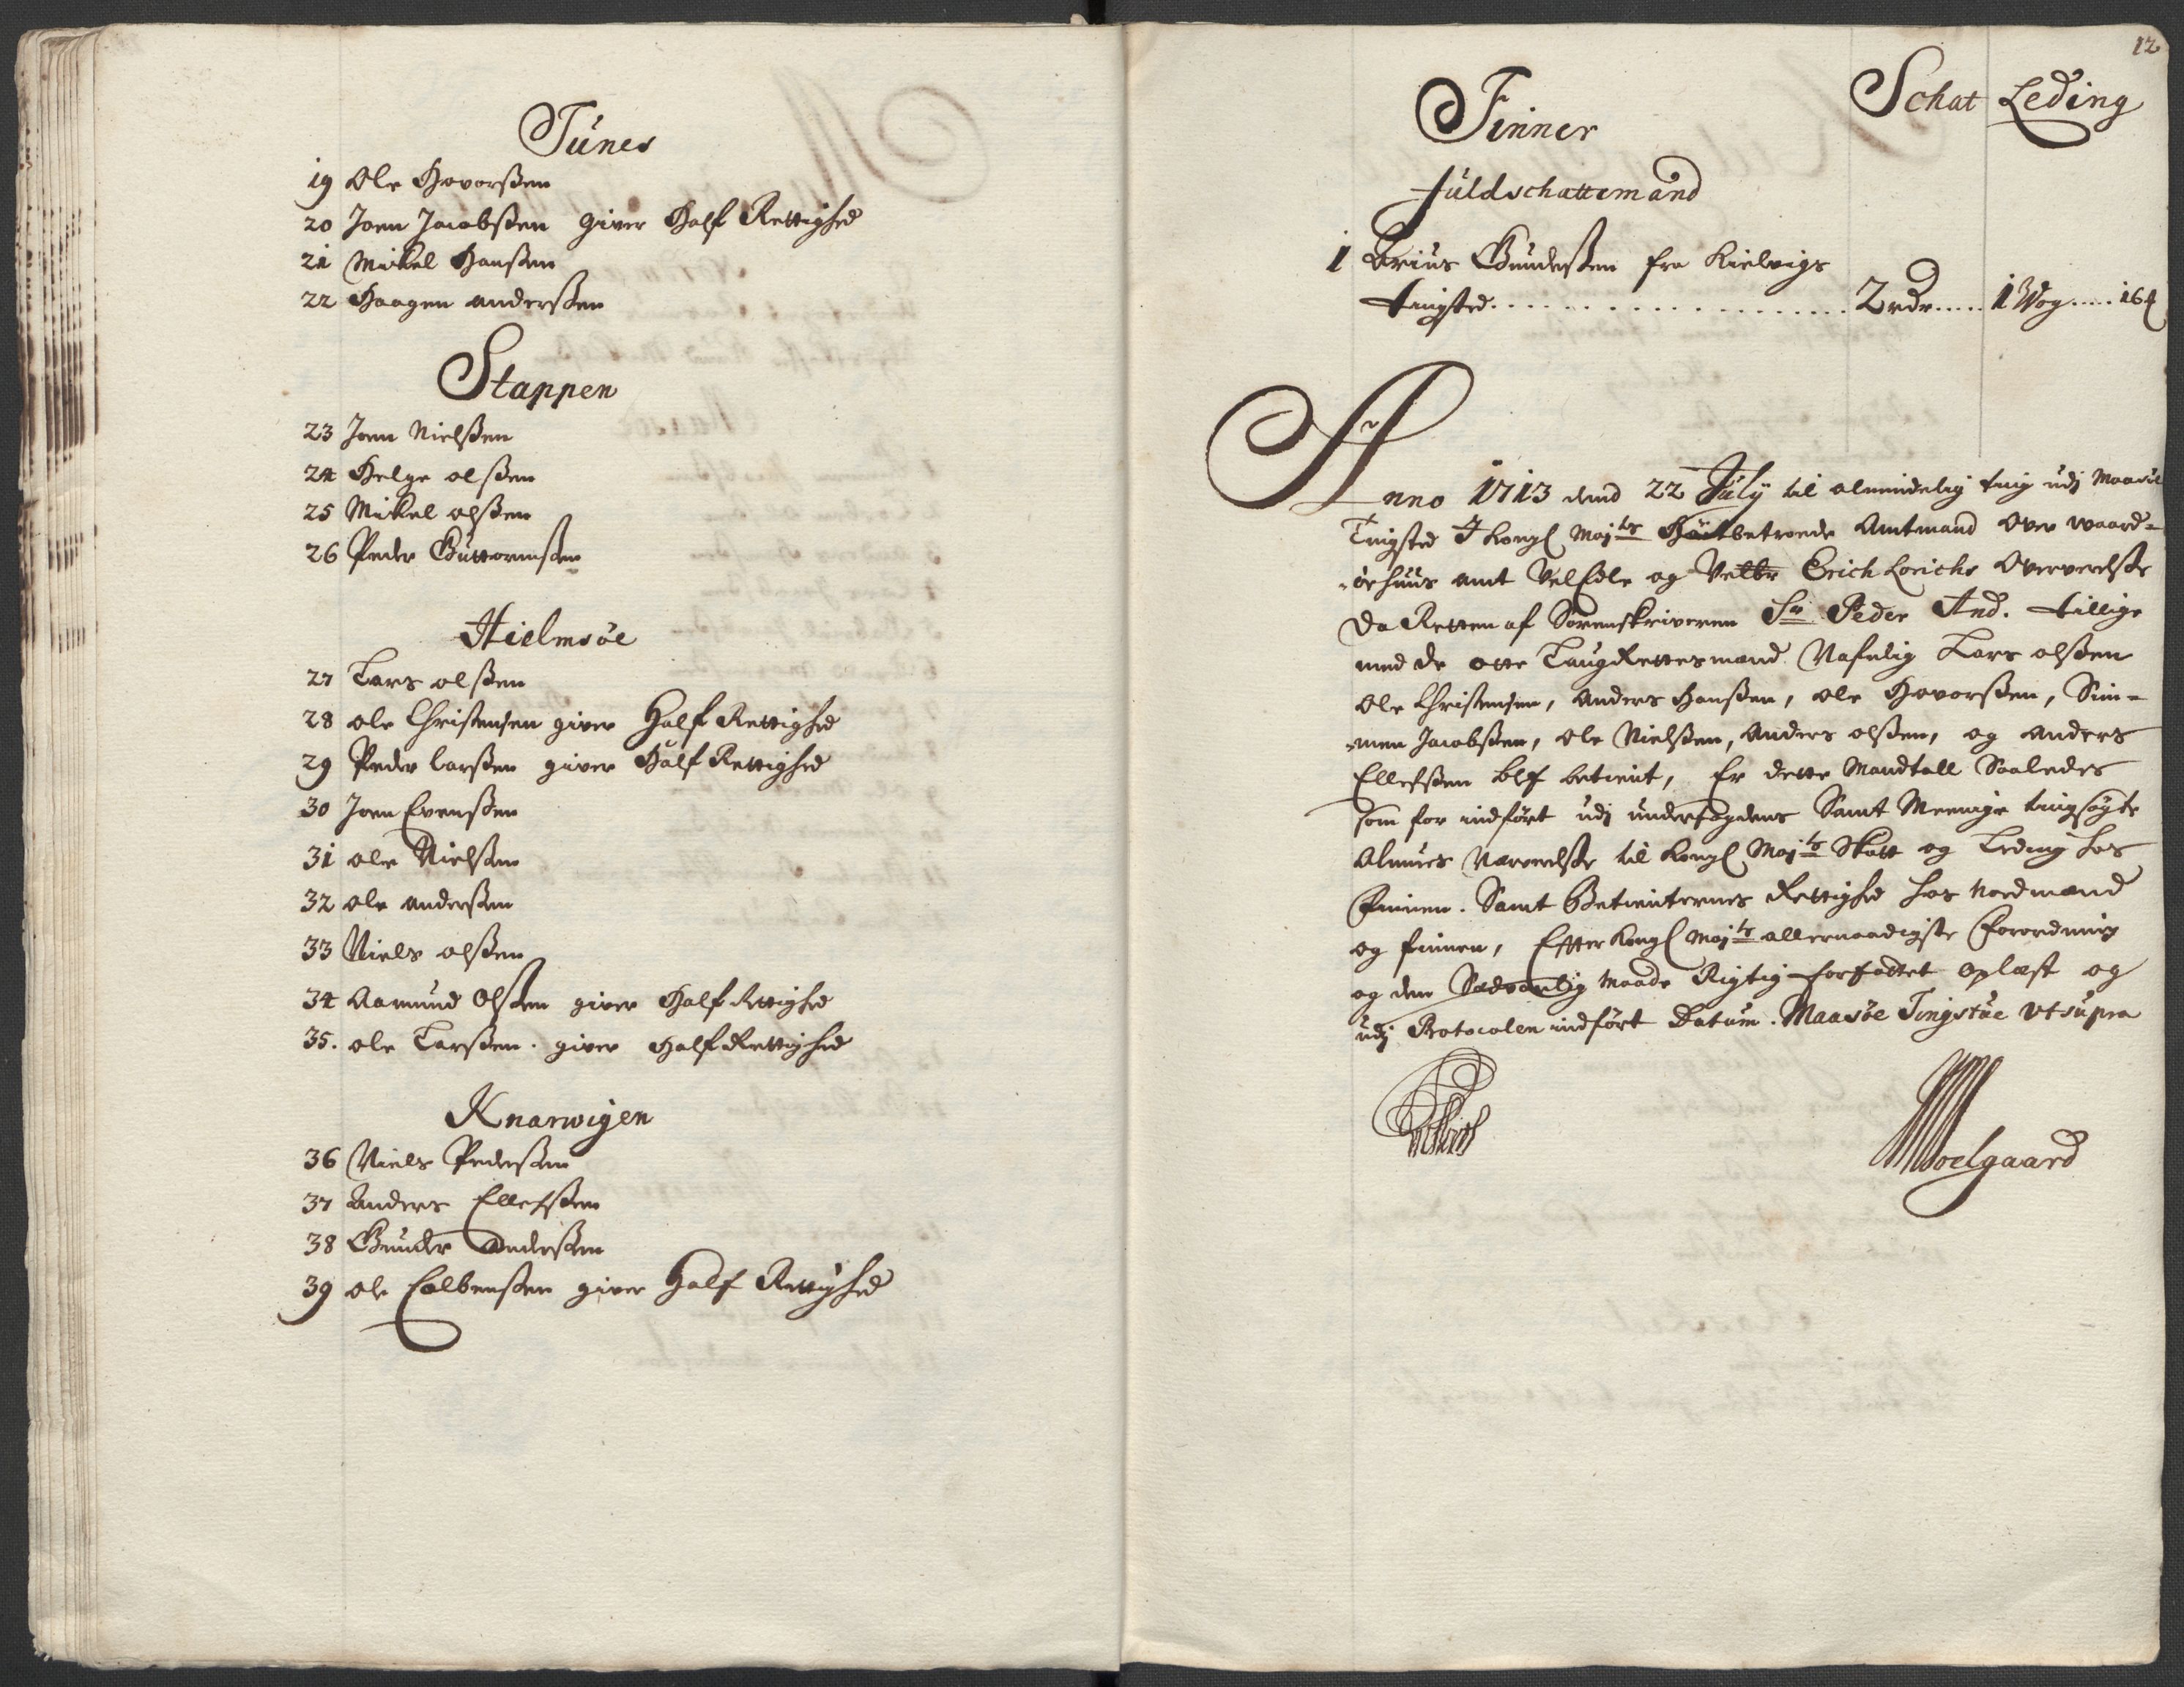 Tunes
19 Ole Hovorßen
20 Joen Jacobßen giver Half Rettighed
21 Mickel Hanßen
22 Haagen anderßen
Stappen
23 Joen Nielßen
24 Helge olßen
25 Mickel olßen
26 Peder Guttormßen
Hielmsøe
27 Lars olßen
28 ole Christensen giver Half Rettighed
29 Peder larßen giver Half Rettighed
30 Joen Evenßen
31 ole Nielßen
32 ole anderßen
33 Niels olßen
34 Aamund Olßen giver Half Rettighed
35. ole Larßen. giver Half Rettighed
Knarwigen
36 Niels Pederßen
37 Anders Ellefßen
38 Gunder Anderßen
39 ole giver Half Rettighed
12
Schat Leding
Finner
fuldschattemænd
1 Gundersen fra Kielvigs
tingsted 2 rdr 1 Wog 16
Anno 1713 dend 22 July til almindelig ting udj Maasøe
Tingsted I Kongl Maj:ts Høitbetroede Amtmand Over Waard-
-øehuus amt VelEdle og Velbr Erich Lorichs Oververelse
Da Retten af Sorenskriveren Sr Peder And. tillige
med de otte LaugRettesmænd Nafnlig Lars olßen
Ole Christensen, Anders Hanßen, ole Hovorßen, Sim-
-men Jacobßen, Ole Nielßen, Anders olßen, og Anders
Ellefsßen blef betient, Er dette Mandtall Saaledes
som for indført udj underfogdens Samt Meenige tingsøgte
Almues Nærverelse til Kongl Maj:ts Skatt og Leding hos
Finnen. Samt Betienternes Rettighed hos Nordmænd
og finnen, Efter Kongl Maj:ts allernaadigste Forordning
og den Sædvanlig Maade Rigtig forfattet oplæst og
udj Protocolen indført Datum. Maasøe Tingstue Utsupra